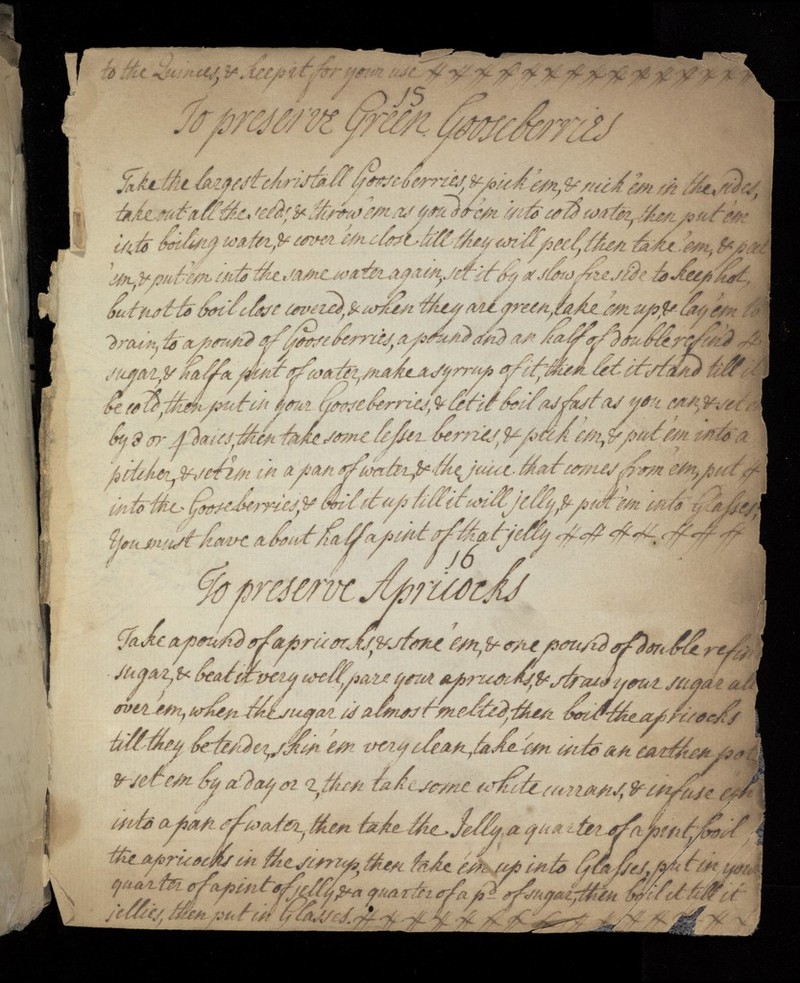 to the Quinces, & keep it for your use
15
To preserve Green Gooseberries
Take the largest christall Gooseberries, & pick 'em, & nick 'em in the sides,
take out all the seeds, & throw 'em as you do 'em into cold water, then put 'em
into boiling water, & cover 'em close till they will peel, then take 'em, & peel
'em, & put 'em into the same water again, set it by a slow fire side to keep hot,
but not to boil close covered, & when they are green, take 'em up & lay 'em to
drain, to a pound of Gooseberries, a pound and an half of double refin'd
sugar, & half a pint of water, make a syrrup of it, then let it stand till it
be cold, then put in your Gooseberries, & let it boil as fast as you can, & set
by 3 or 4 daies, then take some lesser berries, & pick 'em, & put 'em into a
pitcher, & set 'em in a pan of water, & the juice that comes from 'em, put
into the Gooseberries, & boil it up till it will jelly, & put 'em into Glasses,
You must have about half a pint of that jelly
16
To preserve Apricocks
Take a pound of apricocks, & stone 'em, & one pound of double
sugar, & beat it very well, pare your apricocks, & straw your sugar all
over 'em, when the sugar is almost melted, then boil the apricocks
till they be tender, skin 'em very clean, take 'em into an earthen
& set em by a day or 2, then take some white currans, & infuse em
into a pan of water, then take the Jelly, a quarter of a pint, boil
the apricocks in the sirrup, then take 'em up into Glasses, put in your
quarter of a pint of jelly, & a quarter of a pd of sugar, then boil it till it
jellies, then put in Glasses.